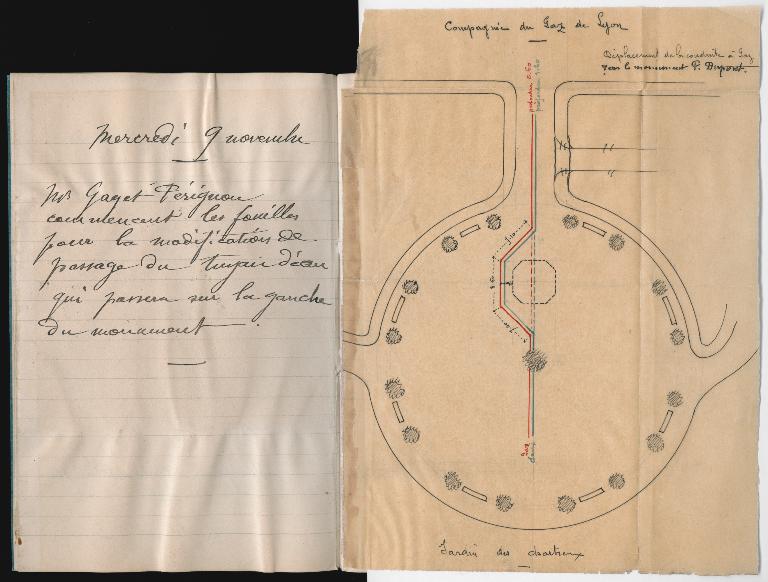 Mercredi 9 novembre
Mrs Gaget-Pérignon
commencent les fouilles
pour la modification de
passage du tuyau d'eau
qui passera sur la gauche
du monument.
Compagnie du Gaz de Lyon
Déplacement de la conduite à Gaz
pour le monument P. Dupont.
profondeur 0.60
profondeur 1.60
Gaz
Eaux
Jardin des chartreux